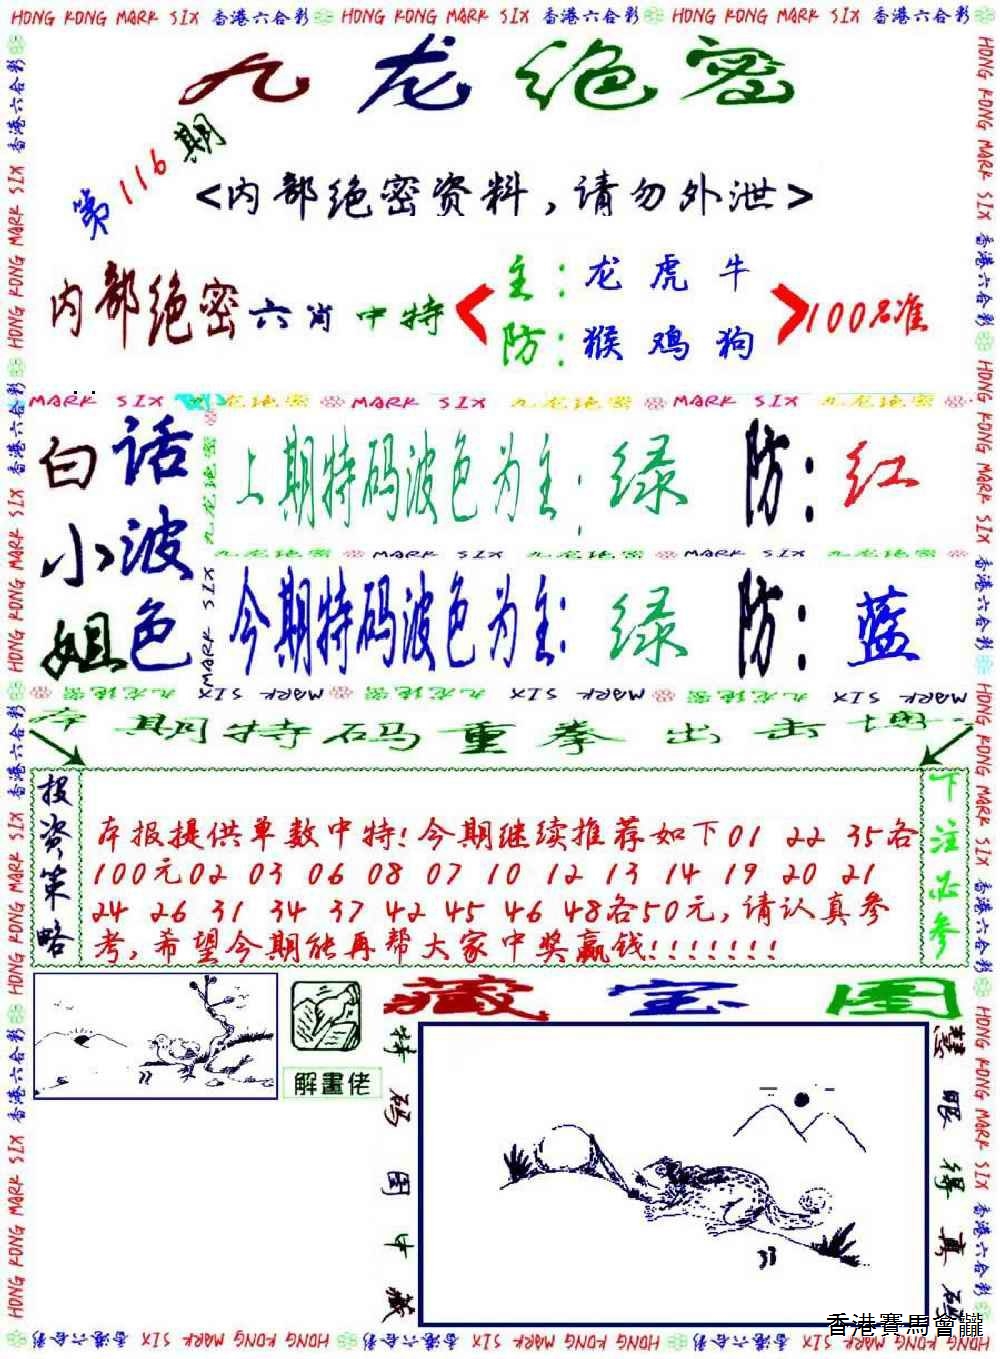 HONG KONG MARK SIX 香港六合彩 HONG KONG MARK SIX 香港六合彩 HONG KONG MARK SIX 香港六合彩
九龙绝密
第116期
<内部绝密资料，请勿外泄>
内部绝密六肖中特
主：龙虎牛
防：猴鸡狗
100%准
MARK SIX 九龙绝密 MARK SIX 九龙绝密 MARK SIX 九龙绝密
白小姐
话波色
上期特码波色为主：绿 防：红
九龙绝密 MARK SIX 九龙绝密 MARK SIX 九龙绝密
今期特码波色为主：绿 防：蓝
本期特码重拳出击
投资策略
本报提供单数中特！今期继续推荐如下01 22 35各
100元02 03 06 08 07 10 12 13 14 19 20 21
24 26 31 34 37 42 45 46 48各50元，请认真参
考，希望今期能再帮大家中奖赢钱！！！！！！！
下注必参
解畫佬
藏宝图
特码图中藏
慧眼得真码
香港賽馬會